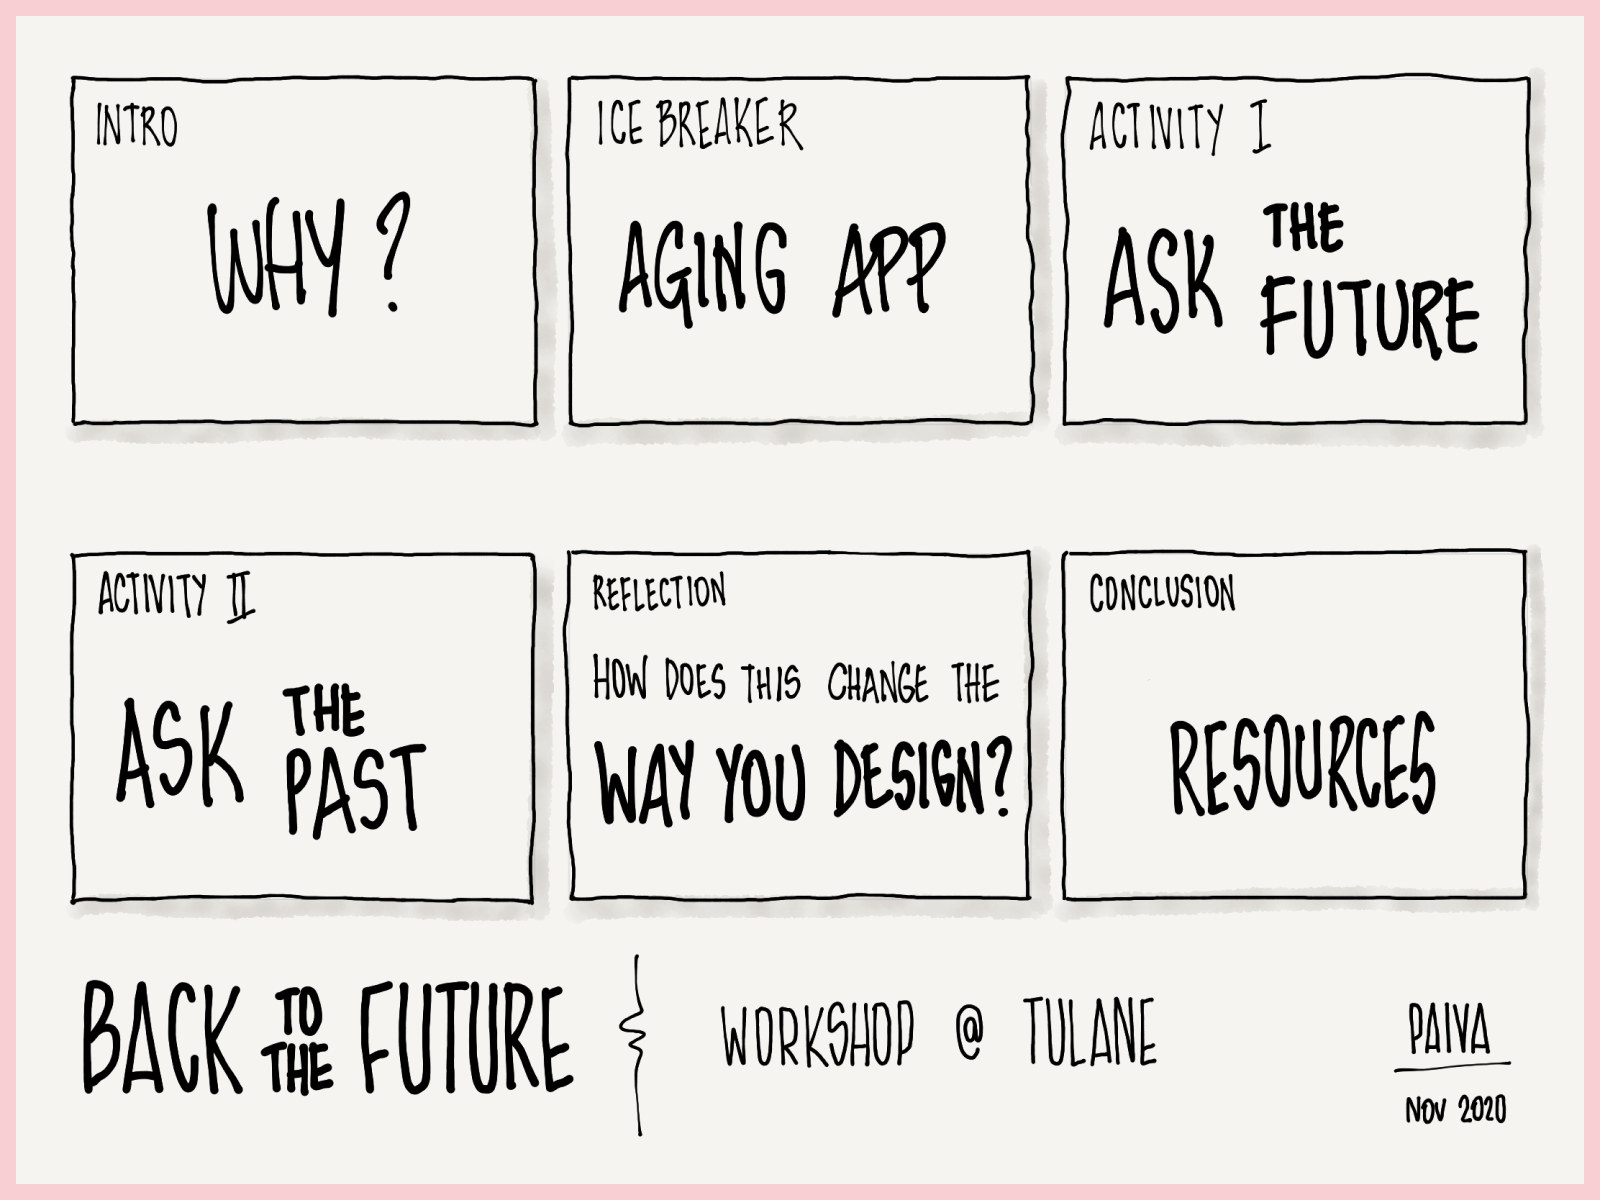 INTRO
WHY ?
ICE BREAKER
AGING APP
ACTIVITY I
ASK THE
FUTURE
ACTIVITY II
ASK THE
PAST
REFLECTION
HOW DOES THIS CHANGE THE
WAY YOU DESIGN?
CONCLUSION
RESOURCES
BACK TO THE FUTURE
WORKSHOP @ TULANE
PAIVA
NOV 2020